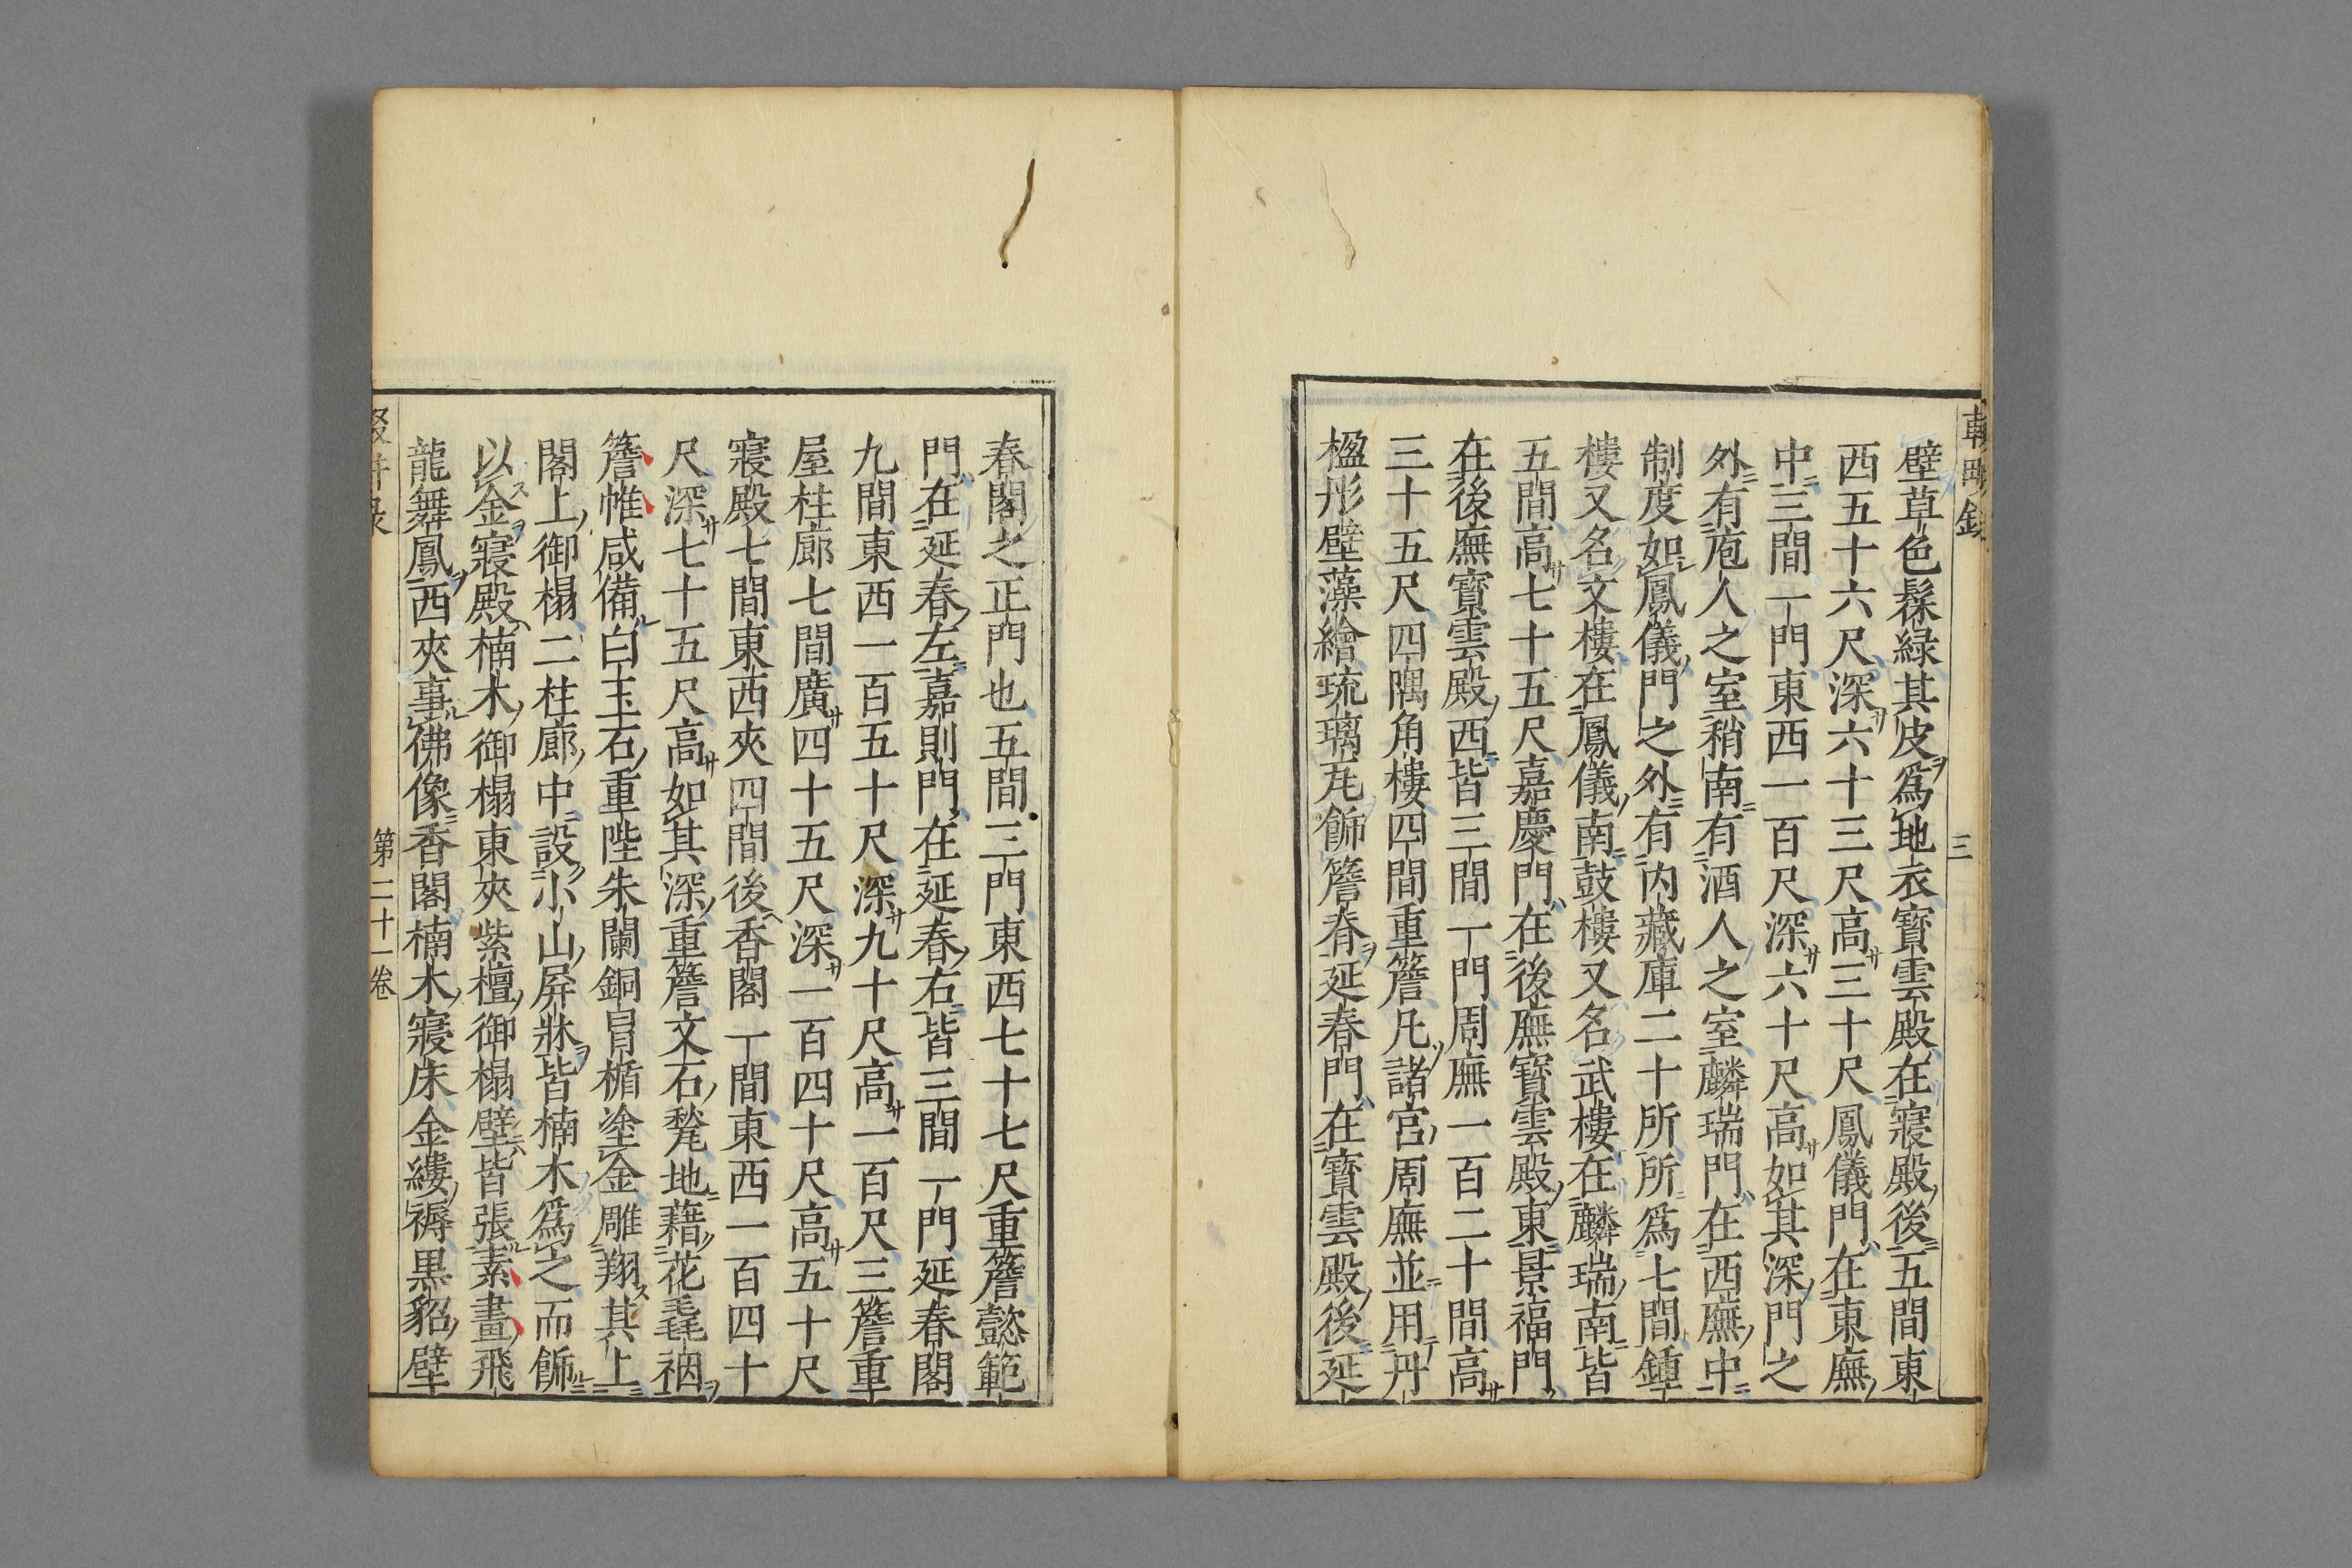 壁草色髹緑其皮爲地衣寳雲殿在寝殿後五間東
西五十六尺深六十三尺高三十尺鳳儀門在東廡
中三間一門東西一百尺深六十尺高如其深門之
外有庖人之室稍南有酒人之室麟瑞門在西廡中
制度如鳳儀門之外有内藏庫二十所所爲七間鍾
樓又名文樓在鳳儀南鼓樓又名武樓在麟瑞南皆
五間高七十五尺嘉慶門在後廡寳雲殿東景福門
在後廡寳雲殿西皆三間一門周廡一百二十間高
三十五尺四隅角樓四間重簷凡諸宮周廡並用丹
楹彤壁藻繪琉璃瓦飾簷脊延春門在寳雲殿後延
三
春閣之正門也五間三門東西七十七尺重簷懿範
門在延春左嘉則門在延春右皆三間一門延春閣
九間東西一百五十尺深九十尺高一百尺三簷重
屋柱廊七間廣四十五尺深一百四十尺高五十尺
寝殿七間東西夾四間後香閣一間東西一百四十
尺深七十五尺高如其深重簷文石甃地藉花毳裀
簷帷咸備白玉石重陛朱闌銅冒楯塗金雕翔其上
閣上御榻二柱廊中設小山屏牀皆楠木爲之而飾
以金寝殿楠木御榻東夾紫檀御榻壁皆張素畫飛
龍舞鳳西夾事佛像香閣楠木寝床金縷褥黒貂壁
第二十一卷